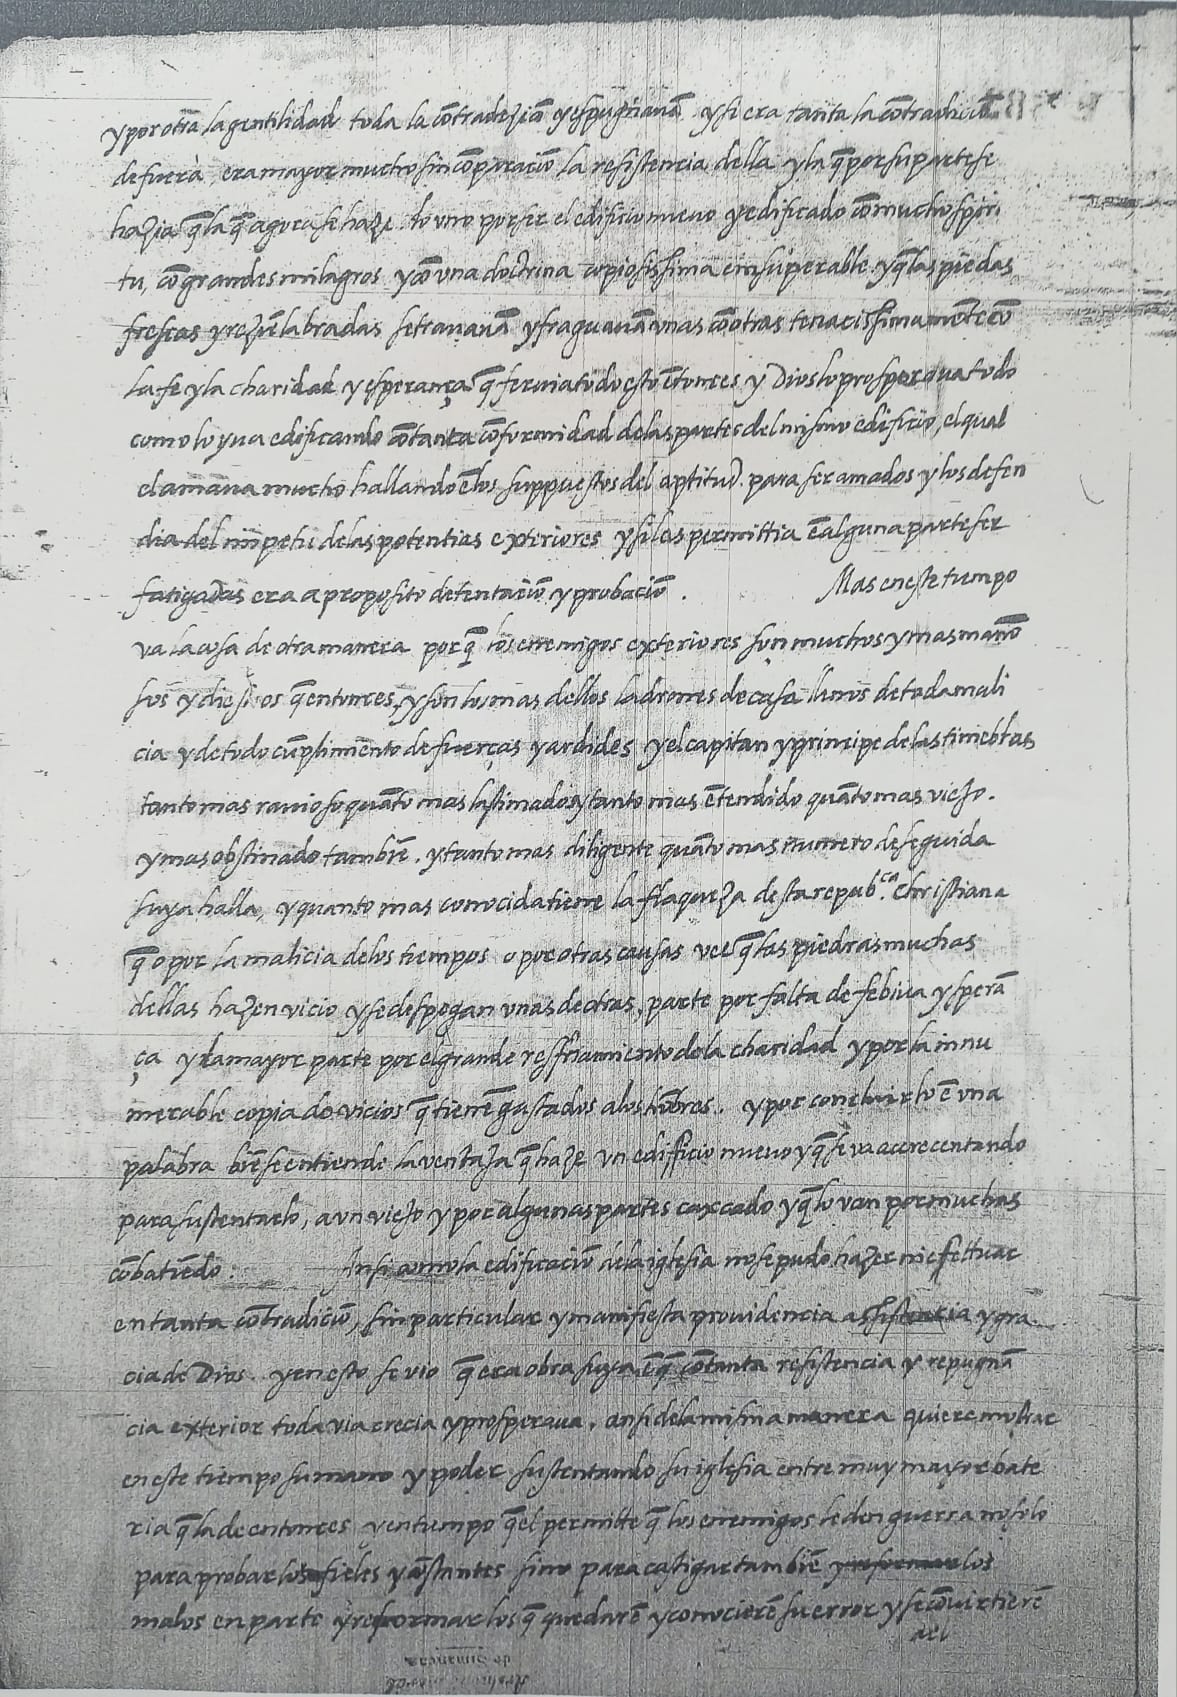 y por otra la gentilidad toda la cōtradeziā y espugnauā y si era tanta la cōtradiciō
de fuera, era mayor mucho sin cōparaciō la resistencia della y la q̄ por su parte se
hazia q̄ la q̄ agora se haze. lo vno por ser el edificio nueuo y edificado cō mucho spiri
tu, cō grandes milagros y cō vna doctrina copiosissima e insuperable. y q̄ las piedas
frescas y reziē labradas se trauauā y fraguauā vnas cō otras tenacissimamēte cō
la fe y la charidad y esperança q̄ seruia todo esto ētonces y Dios lo prosperaua todo
como lo yua edificando cō tanta cōformidad de las partes del mismo edificio, el qual
el amaua mucho hallando ē los suppuestos del aptitud para ser amados y los defen
dia del impetu de las potentias exteriores y si les permittia ē alguna parte ser
fatigadas era a proposito de tentaciō y probaciō. Mas en este tiempo
va la cosa de otra manera porq̄ los enemigos exteriores son muchos y mas mañō
sos y diestros q̄ entonces, y son los mas dellos ladrones de casa llenos de toda mali
cia y de todo cūplimiento de fuerças y ardides y el capitan y principe de las tinieblas
tanto mas rauioso quāto mas lastimado y tanto mas ētendido quāto mas viejo.
y mas obstinado tambiē. y tanto mas diligente quāto mas numero de seguida
suya halla, y quanto mas conocida tiene la flaqueza desta repub.ca Christiana
q̄ o por la malicia de los tiempos o por otras causas vee q̄ las piedras muchas
dellas hazen vicio y se despegan vnas de otras, parte por falta de fe biua y sperā
ça y la mayor parte por el grande resfriamiento de la charidad y por la innu
merable copia de vicios q̄ tienē gastados a los hōbres. y por concluirlo ē vna
palabra biē se entiende la ventaja q̄ haze vn edifficio nueuo y q̄ se va accrecentando
para sustentarlo, a vn viejo y por algunas partes caxcado y q̄ lo van por muchas
cōbatiēdo. Ansi como la edificaciō de la iglesia no se pudo hazer ni effettuar
en tanta cōtradiciō, sin particular y manifiesta prouidencia assistencia y gra
cia de Dios. y en esto se vio q̄ era obra suya ē q̄ cō tanta resistencia y repugnā
cia exterior toda via crecia y prosperaua. ansi de la misma manera quiere mostrar
en este tiempo su mano y poder sustentando su iglesia entre muy mayor bate
ria q̄ la de entonces y en tiempo q̄ el permitte q̄ los enemigos le den guerra no solo
para probar los fieles y cōstantes sino para castigar tambiē y reformar los
malos en parte y reformar los q̄ quedarē y conocierē su error y se cōuirtierē
del